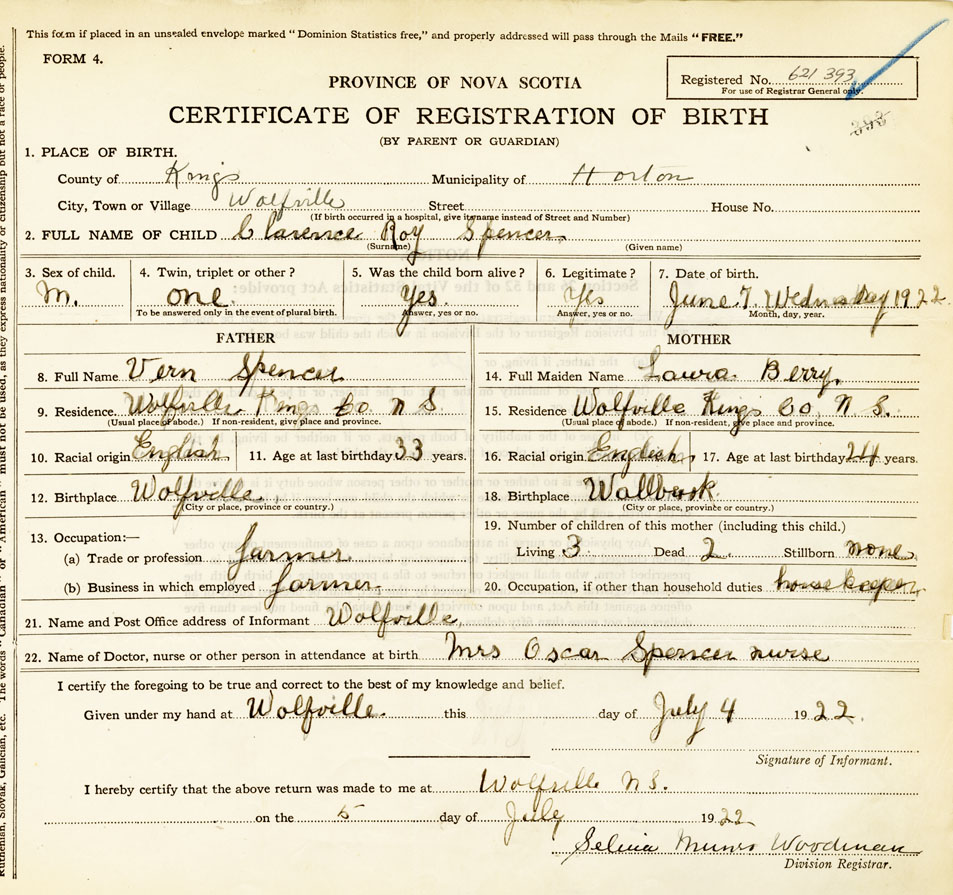 This form if placed in an unsealed envelope marked "Dominion Statistics free," and properly addressed will pass through the Mails "FREE."
FORM 4.
PROVINCE OF NOVA SCOTIA
Registered No. 621 393
For use of Registrar General only.
393
CERTIFICATE OF REGISTRATION OF BIRTH
(BY PARENT OR GUARDIAN)
1. PLACE OF BIRTH.
County of Kings Municipality of Horton
City, Town or Village Wolfville Street House No.
(If birth occurred in a hospital, give its name instead of Street and Number)
2. FULL NAME OF CHILD Clarence Roy Spencer
(Surname) (Given name)
3. Sex of child. 4. Twin, triplet or other? 5. Was the child born alive? 6. Legitimate? 7. Date of birth.
M. one. Yes. Yes June 7. Wednesday 1922.
To be answered only in the event of plural birth. Answer, yes or no. Answer, yes or no. Month, day, year.
FATHER MOTHER
8. Full Name Vern Spencer 14. Full Maiden Name Laura Berry.
9. Residence. Wolfville Kings Co N S 15. Residence Wolfville Kings Co. N. S.
(Usual place of abode.) If non-resident, give place and province. (Usual place of abode.) If non-resident, give place and province.
10. Racial origin English 11. Age at last birthday 33 years. 16. Racial origin English 17. Age at last birthday 24 years.
12. Birthplace Wolfville. 18. Birthplace Wallbrook.
(City or place, province or country.) (City or place, province or country.)
19. Number of children of this mother (including this child.)
13. Occupation:—
(a) Trade or profession farmer. Living 3 Dead 2 Stillborn none
(b) Business in which employed farmer. 20. Occupation, if other than household duties housekeeper
21. Name and Post Office address of Informant Wolfville,
22. Name of Doctor, nurse or other person in attendance at birth Mrs Oscar Spencer nurse
I certify the foregoing to be true and correct to the best of my knowledge and belief.
Given under my hand at Wolfville. this day of July 4 1922.
Signature of Informant.
I hereby certify that the above return was made to me at Wolfville N S.
on the 5 day of July 1922
Selina Munro Woodman
Division Registrar.
Ruthenian, Slovak, Galician, etc. The words "Canadian" or "American" must not be used, as they express nationality or citizenship but not a race or people.